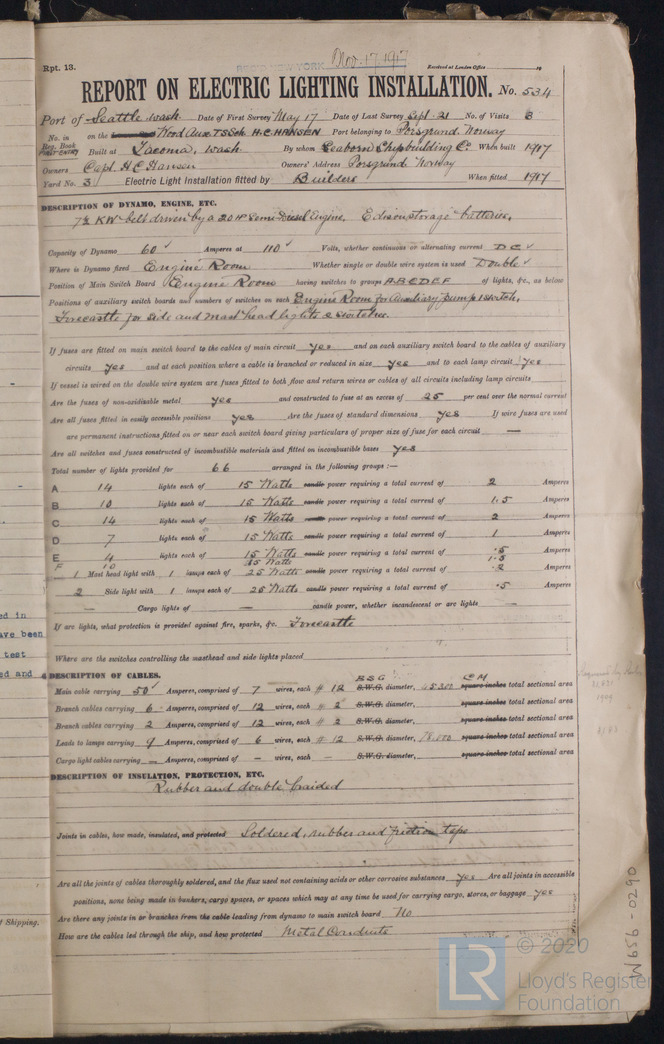 Rpt. 13.
REC'D NEW YORK Nov. 17, 1917
Received at London Office 19
REPORT ON ELECTRIC LIGHTING INSTALLATION. No. 534
Port of Seattle Wash Date of First Survey May 17 Date of Last Survey Sept-21 No. of Visits 8
No. in Reg. Book on the Wood Aux TSSch H.C. HANSEN Port belonging to Porsgrund Norway
FIRST ENTRY Built at Tacoma, Wash By whom Seaborn Shipbuilding Co. When built 1917
Owners Capt. H C Hansen Owners' Address Porsgrund Norway
Yard No. 3 Electric Light Installation fitted by Builders When fitted 1917
DESCRIPTION OF DYNAMO, ENGINE, ETC.
7½ KW belt driven by a 20 HP Semi-Diesel Engine. Edison storage batteries.
Capacity of Dynamo 60 Amperes at 110 Volts, whether continuous or alternating current DC
Where is Dynamo fixed Engine Room Whether single or double wire system is used Double
Position of Main Switch Board Engine Room having switches to groups A-B-C-D-E-F of lights, &c., as below
Positions of auxiliary switch boards and numbers of switches on each Engine Room for Auxiliary pump 1 switch,
Forecastle for side and mast head lights
If fuses are fitted on main switch board to the cables of main circuit yes and on each auxiliary switch board to the cables of auxiliary
circuits yes and at each position where a cable is branched or reduced in size yes and to each lamp circuit yes
If vessel is wired on the double wire system are fuses fitted to both flow and return wires or cables of all circuits including lamp circuits
Are the fuses of non-oxidizable metal yes and constructed to fuse at an excess of 25 per cent over the normal current
Are all fuses fitted in easily accessible positions yes Are the fuses of standard dimensions yes If wire fuses are used
are permanent instructions fitted on or near each switch board giving particulars of proper size of fuse for each circuit —
Are all switches and fuses constructed of incombustible materials and fitted on incombustible bases yes
Total number of lights provided for 66 arranged in the following groups :—
A 14 lights each of 15 Watts candle power requiring a total current of 2 Amperes
B 10 lights each of 15 Watts candle power requiring a total current of 1.5 Amperes
C 14 lights each of 15 Watts candle power requiring a total current of 2 Amperes
D 7 lights each of 15 Watts candle power requiring a total current of 1 Amperes
E 4 lights each of 15 Watts candle power requiring a total current of .5 Amperes
F 10 15 Watts 1.5
1 Mast head light with 1 lamps each of 25 Watts candle power requiring a total current of .2 Amperes
2 Side light with 1 lamps each of 25 Watts candle power requiring a total current of .5 Amperes
— Cargo lights of — candle power, whether incandescent or arc lights —
If arc lights, what protection is provided against fire, sparks, &c. Forecastle
Where are the switches controlling the masthead and side lights placed
DESCRIPTION OF CABLES.
B S G C M
Main cable carrying 50 Amperes, comprised of 7 wires, each # 12 S.W.G. diameter, 45,300 square inches total sectional area
Branch cables carrying 6 Amperes, comprised of 12 wires, each # 2 S.W.G. diameter, square inches total sectional area
Branch cables carrying 2 Amperes, comprised of 12 wires, each # 2 S.W.G. diameter, square inches total sectional area
Leads to lamps carrying 9 Amperes, comprised of 6 wires, each # 12 S.W.G. diameter, square inches total sectional area
Cargo light cables carrying — Amperes, comprised of — wires, each — S.W.G. diameter, square inches total sectional area
DESCRIPTION OF INSULATION, PROTECTION, ETC.
Rubber and double braided
Joints in cables, how made, insulated, and protected Soldered, rubber and friction tape
Are all the joints of cables thoroughly soldered, and the flux used not containing acids or other corrosive substances yes Are all joints in accessible
positions, none being made in bunkers, cargo spaces, or spaces which may at any time be used for carrying cargo, stores, or baggage yes
Are there any joints in or branches from the cable leading from dynamo to main switch board No
How are the cables led through the ship, and how protected Metal Conduits
ed in
ave been
test
ed and
f Shipping.
W656-0290
© 2020
LR
Lloyd's Register
Foundation